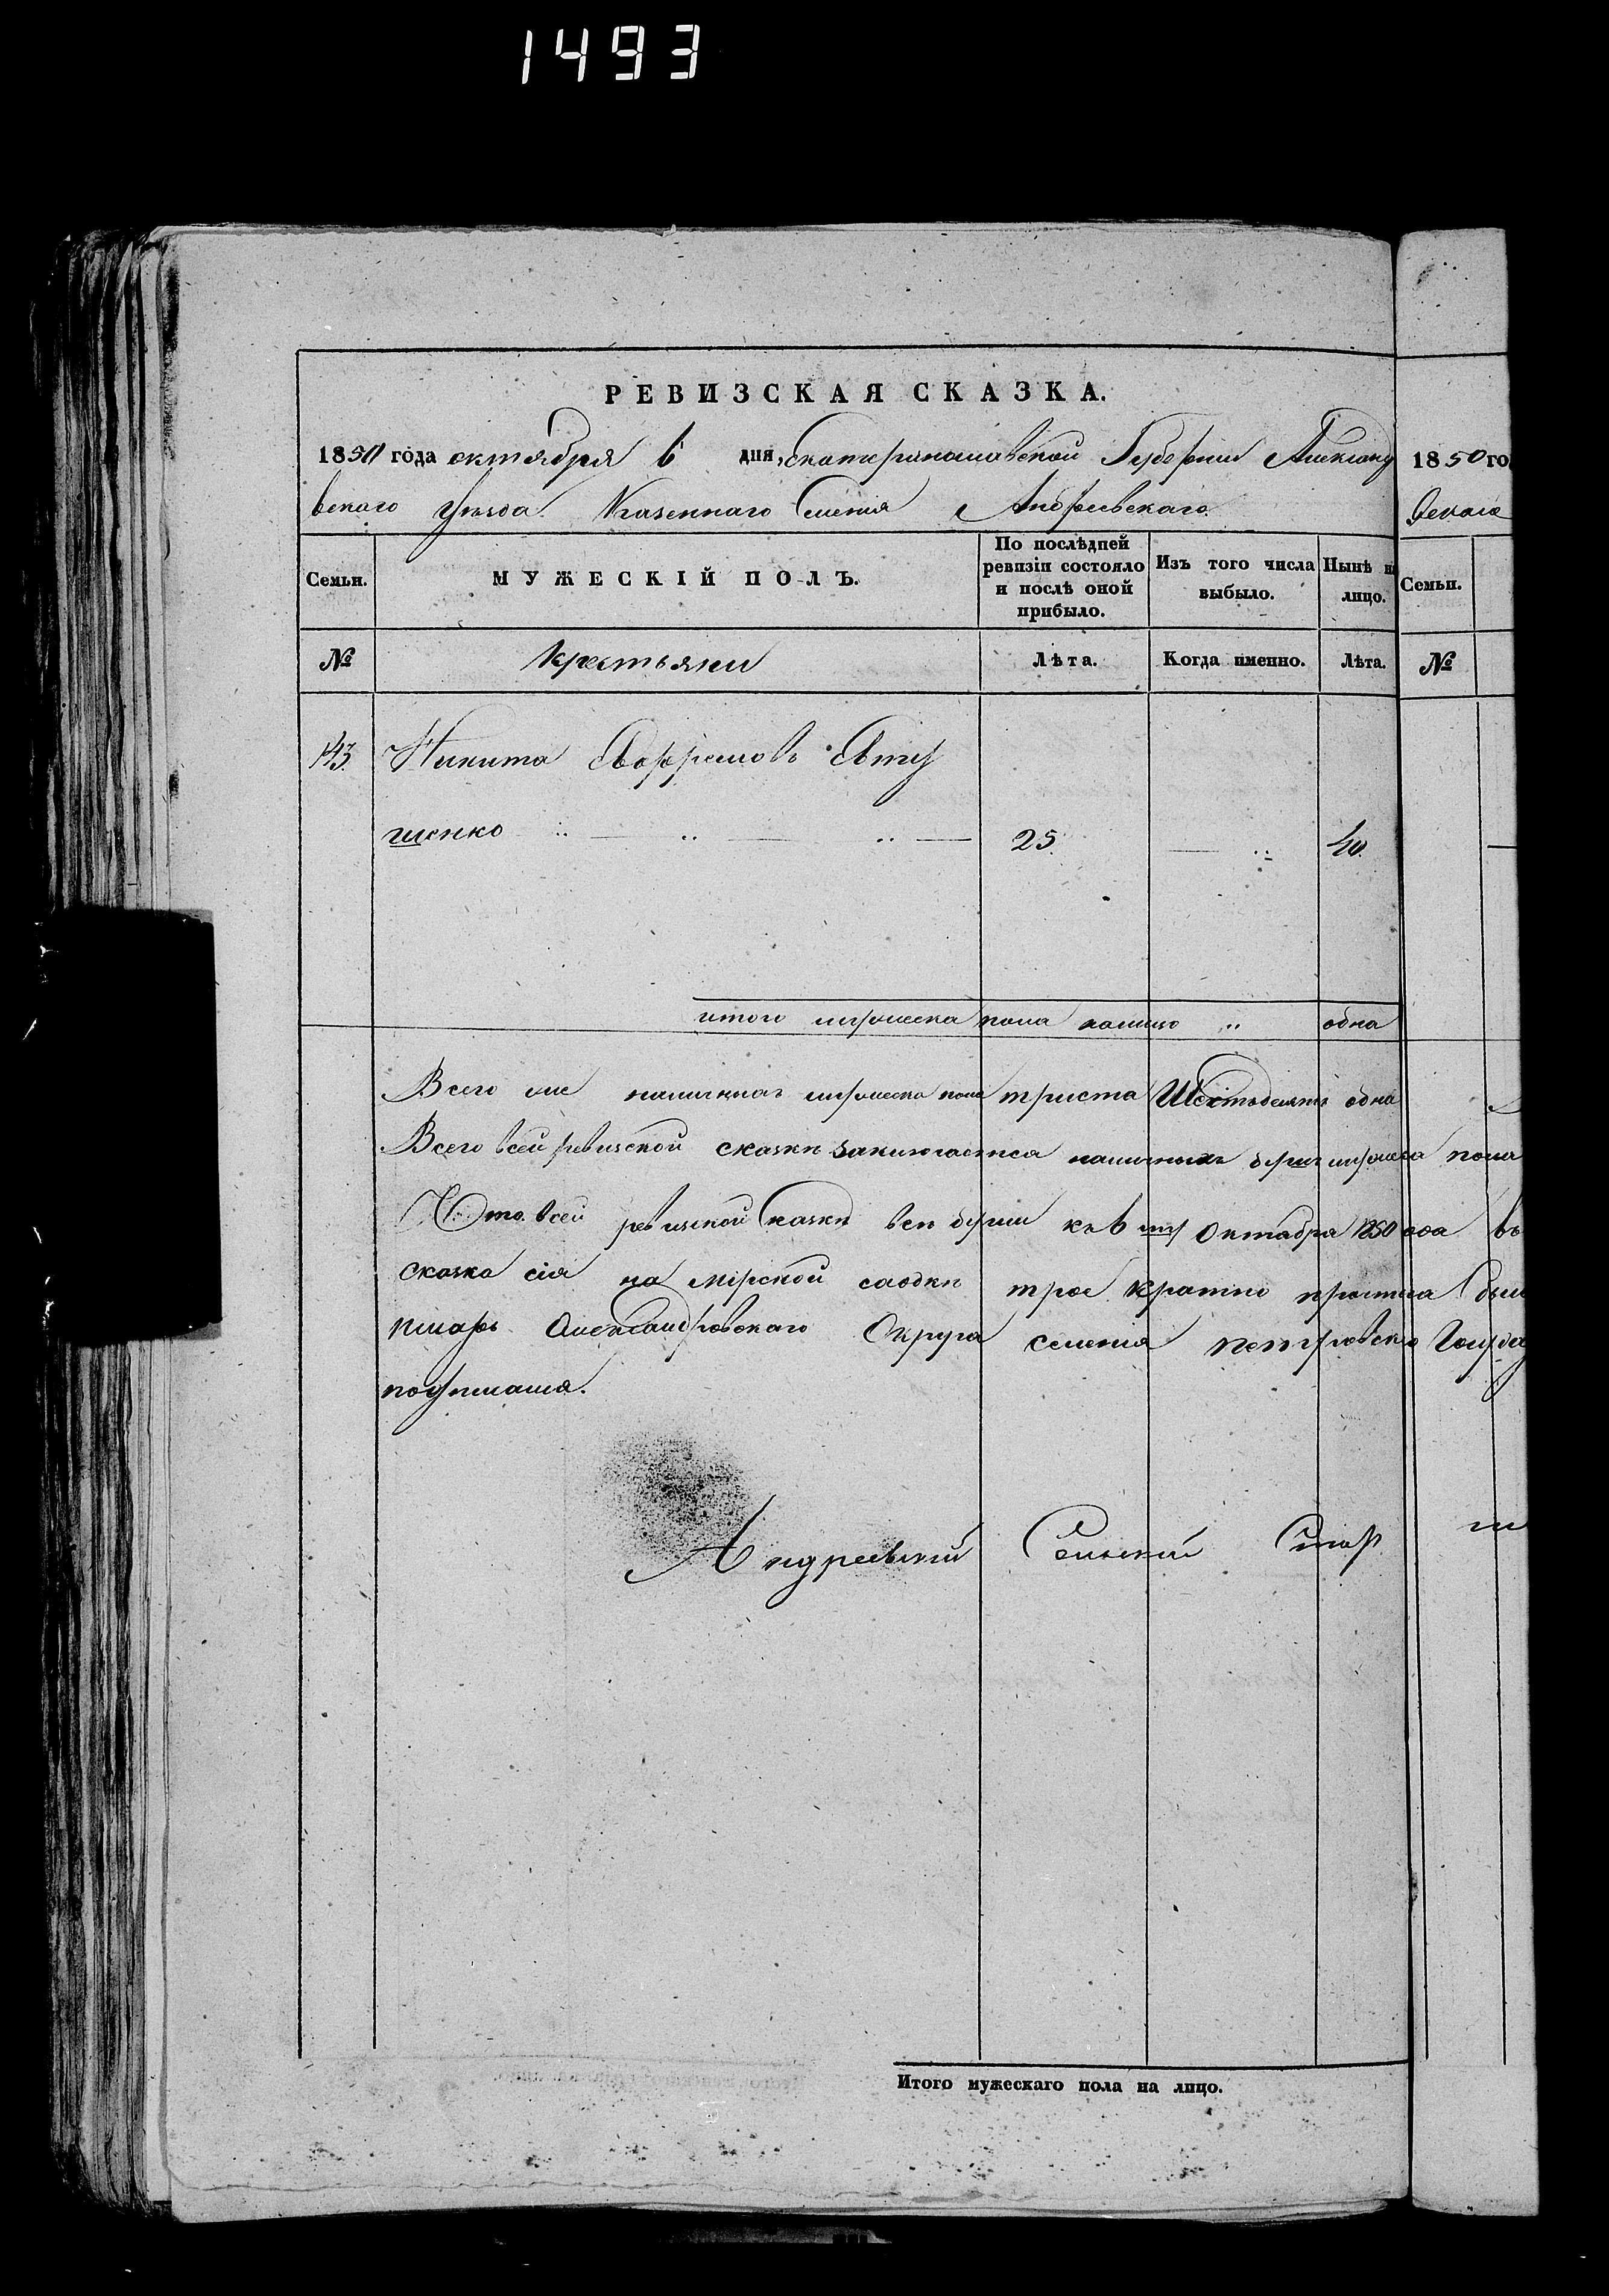 1493
РЕВИЗСКАЯ СКАЗКА.
1850 года октября 6 дня, Екатеринославской Губернии Александ
вскаго уезда Казеннаго Селения Андреевскаго
Семьи.
МУЖЕСКІЙ ПОЛЪ.
По послѣдней ревизіи состояло и послѣ оной прибыло.
Изъ того числа выбыло.
Нынѣ на лицо.
№
крестьяни
Лѣта.
Когда именно.
Лѣта.
143.
Никита Евфремовъ Евту
шенко
25.
40.
итого мужеска пола налицо " одна
Всего же наличнаго мужеска пола триста Шестьдесятъ одна
Всего всей ревизской сказки заключается наличныхъ душъ мужеска пола
Что въ сей ревизской сказки все души къ 6 му Октября 1850 года въ
сказка сія на мірской сходки трое кратно прочтена был
писарь Александровскаго Округа селенія Петровско
подписался.
Андреевский Сельский Стар
1850 го
Семьи.
№
Итого мужескаго пола на лицо.